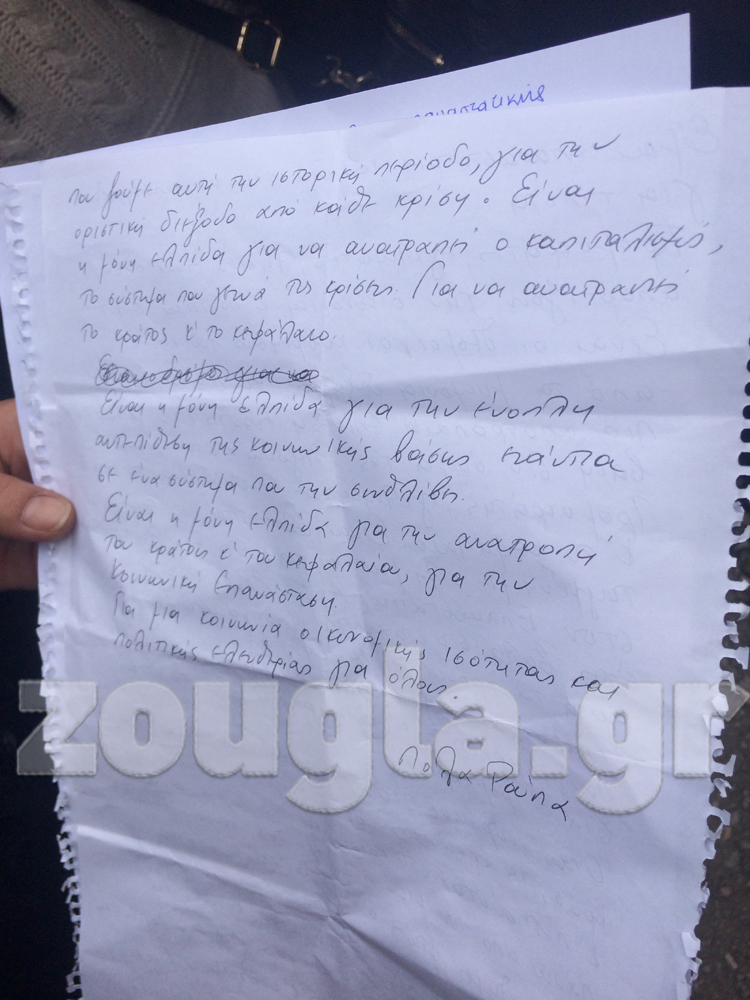 που ζούμε αυτή την ιστορική περίοδο, για την
οριστική διέξοδο από κάθε κρίση. Είναι
η μόνη ελπίδα για να ανατραπεί ο καπιταλισμός,
το σύστημα που γεννά τις κρίσεις. Για να ανατραπεί
το κράτος κ' το κεφάλαιο.
Είναι η μόνη ελπίδα για την ένοπλη
αντεπίθεση της κοινωνικής βάσης ενάντια
σε ένα σύστημα που την συνθλίβει.
Είναι η μόνη ελπίδα για την ανατροπή
του κράτους κ' του κεφαλαίου, για την
Κοινωνική Επανάσταση.
Για μια κοινωνία οικονομικής ισότητας και
πολιτικής ελευθερίας για όλους.
Πόλα Ρούπα
zougla.gr